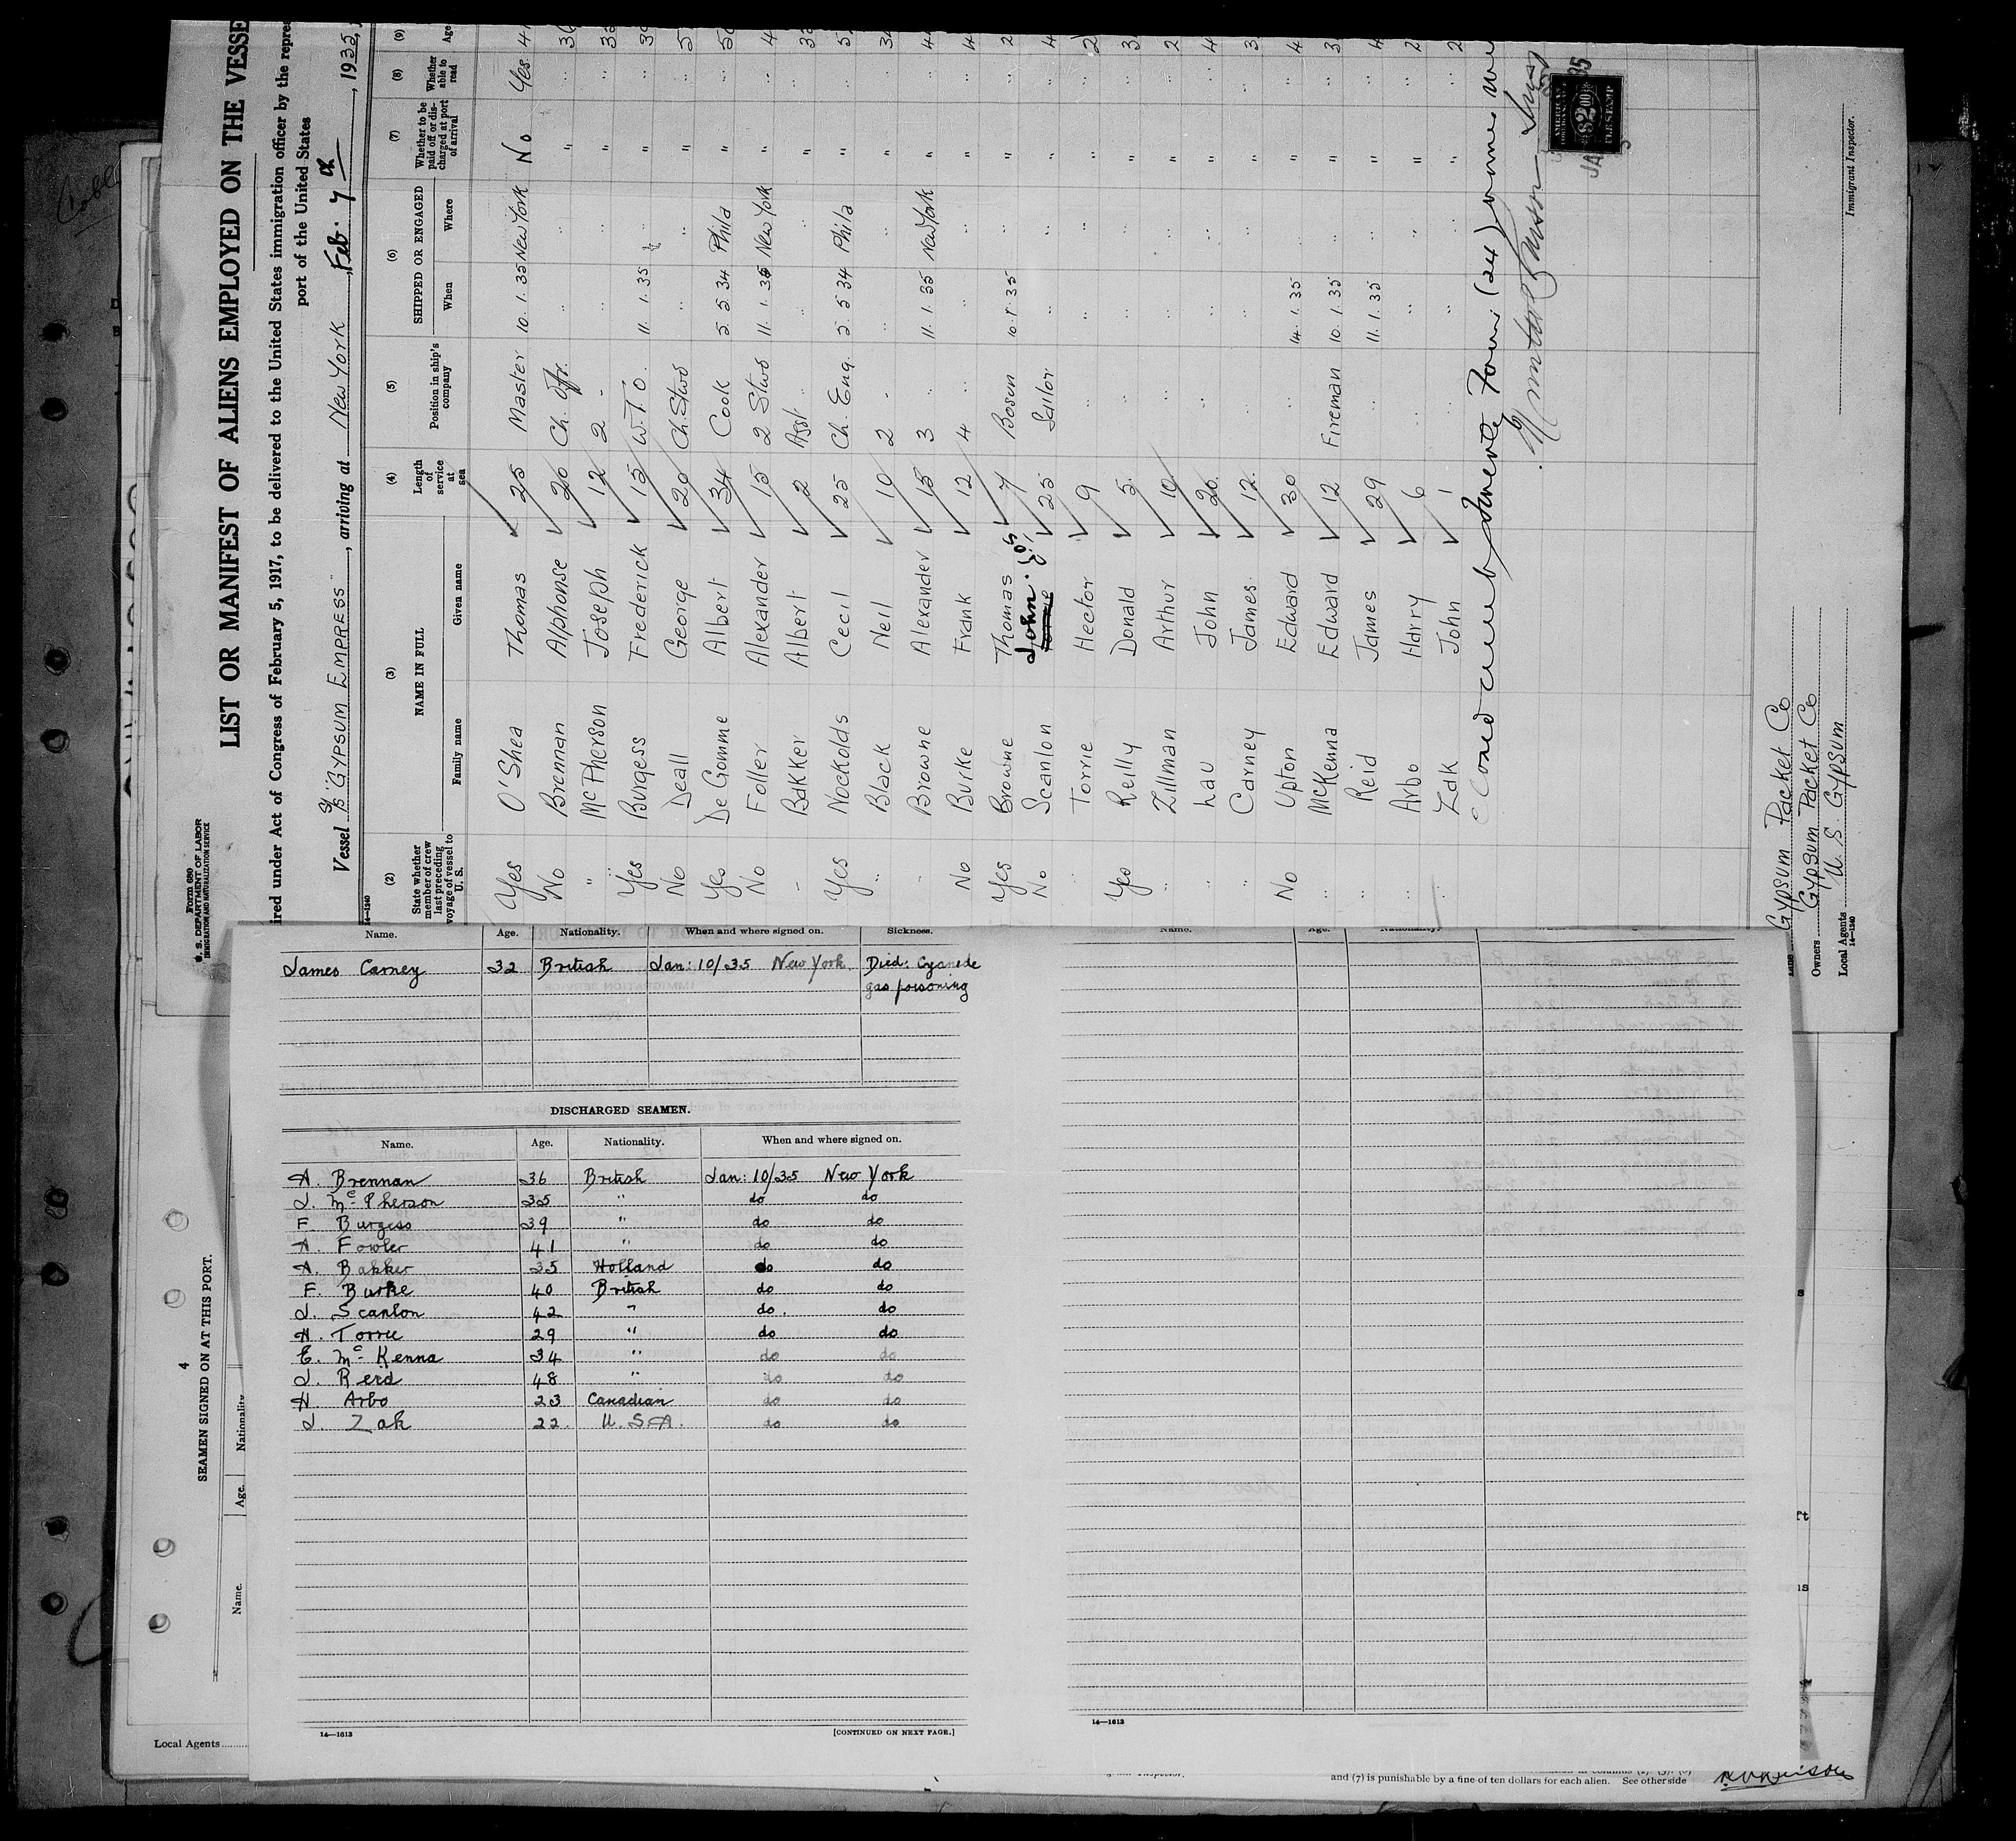 Form 680
U. S. DEPARTMENT OF LABOR
IMMIGRATION AND NATURALIZATION SERVICE
LIST OR MANIFEST OF ALIENS EMPLOYED ON THE VESSE
ired under Act of Congress of February 5, 1917, to be delivered to the United States immigration officer by the repre
port of the United States
Vessel S/S "GYPSUM EMPRESS", arriving at New York, Feb. 7th, 1935,
14—1240
(2) (3) (4) (5) (6) (7) (8) (9)
State whether member of crew last preceding voyage of vessel to U. S. NAME IN FULL Length of service at sea Position in ship's company SHIPPED OR ENGAGED Whether to be paid off or discharged at port of arrival Whether able to read Age
Family name Given name When Where
Yes O'Shea Thomas 25 Master 10. 1. 35 New York No Yes 4
No Brennan Alphonse 20 Ch. Ofr. " " " " 36
" McPherson Joseph 12 2 - " " " "
Yes Burgess Frederick 15 W.T.O. 11. 1. 35 " " "
No Deall George 20 Ch. Stwd " " " " 5
Yes De Gomme Albert 34 Cook 5 5 34 Phila " "
No Foller Alexander 15 2 Stwd 11. 1. 35 New York " " 4
- Bakker Albert 2 Asst " " " " "
Yes Nockolds Cecil 25 Ch. Eng. 5 5 34 Phila " " 5
" Black Neil 10 2 " " " " " 3
Browne Alexander 15 3 " 11. 1. 35 New York " " 4
No Burke Frank 12 4 " " " " " 4
Yes Browne Thomas 7 Bosun 10. 1. 35 " " " 2
No Scanlon John 25 Sailor " " " " 4
" Torrie Hector 9 " " " " " 2
Yes Reilly Donald 5 " " " " " 3
" Zillman Arthur 10 " " " " " 2
" Lau John 20 " " " " " 4
" Carney James 12 " " " " " 3
No Upton Edward 30 " 14. 1. 35 " " " 4
" McKenna Edward 12 Fireman 10. 1. 35 " " " 3
" Reid James 29 " 11. 1. 35 " " " 4
" Arbo Harry 6 " " " " " 2
" Zak John 1 " " " " " 2
Closed Twenty Four (24) names
$2.00
Immigrant Inspector.
Gypsum Packet Co
Owners Gypsum Packet Co
Local Agents U S Gypsum
14—1240
Name. Age. Nationality. When and where signed on. Sickness.
James Carney 32 British Jan: 10/35 New York Died: Cyanide
gas poisoning
DISCHARGED SEAMEN.
Name. Age. Nationality. When and where signed on.
A. Brennan 36 British Jan: 10/35 New York
J. McPherson 35 " do do
F. Burgess 39 " do do
A. Fowler 41 " do do
A. Bakker 35 Holland do do
F. Burke 40 British do do
J. Scanlon 42 " do. do
H. Torrie 29 " do do
E. McKenna 34 " do do
J. Reid 48 " do do
H. Arbo 23 Canadian do do
J. Zak 22. U. S A. do do
14—1613
[CONTINUED ON NEXT PAGE.]
Name. Age. Nationality.
14—1613
4
SEAMEN SIGNED ON AT THIS PORT.
Name. Age. Nationality
Local Agents
and (7) is punishable by a fine of ten dollars for each alien. See other side